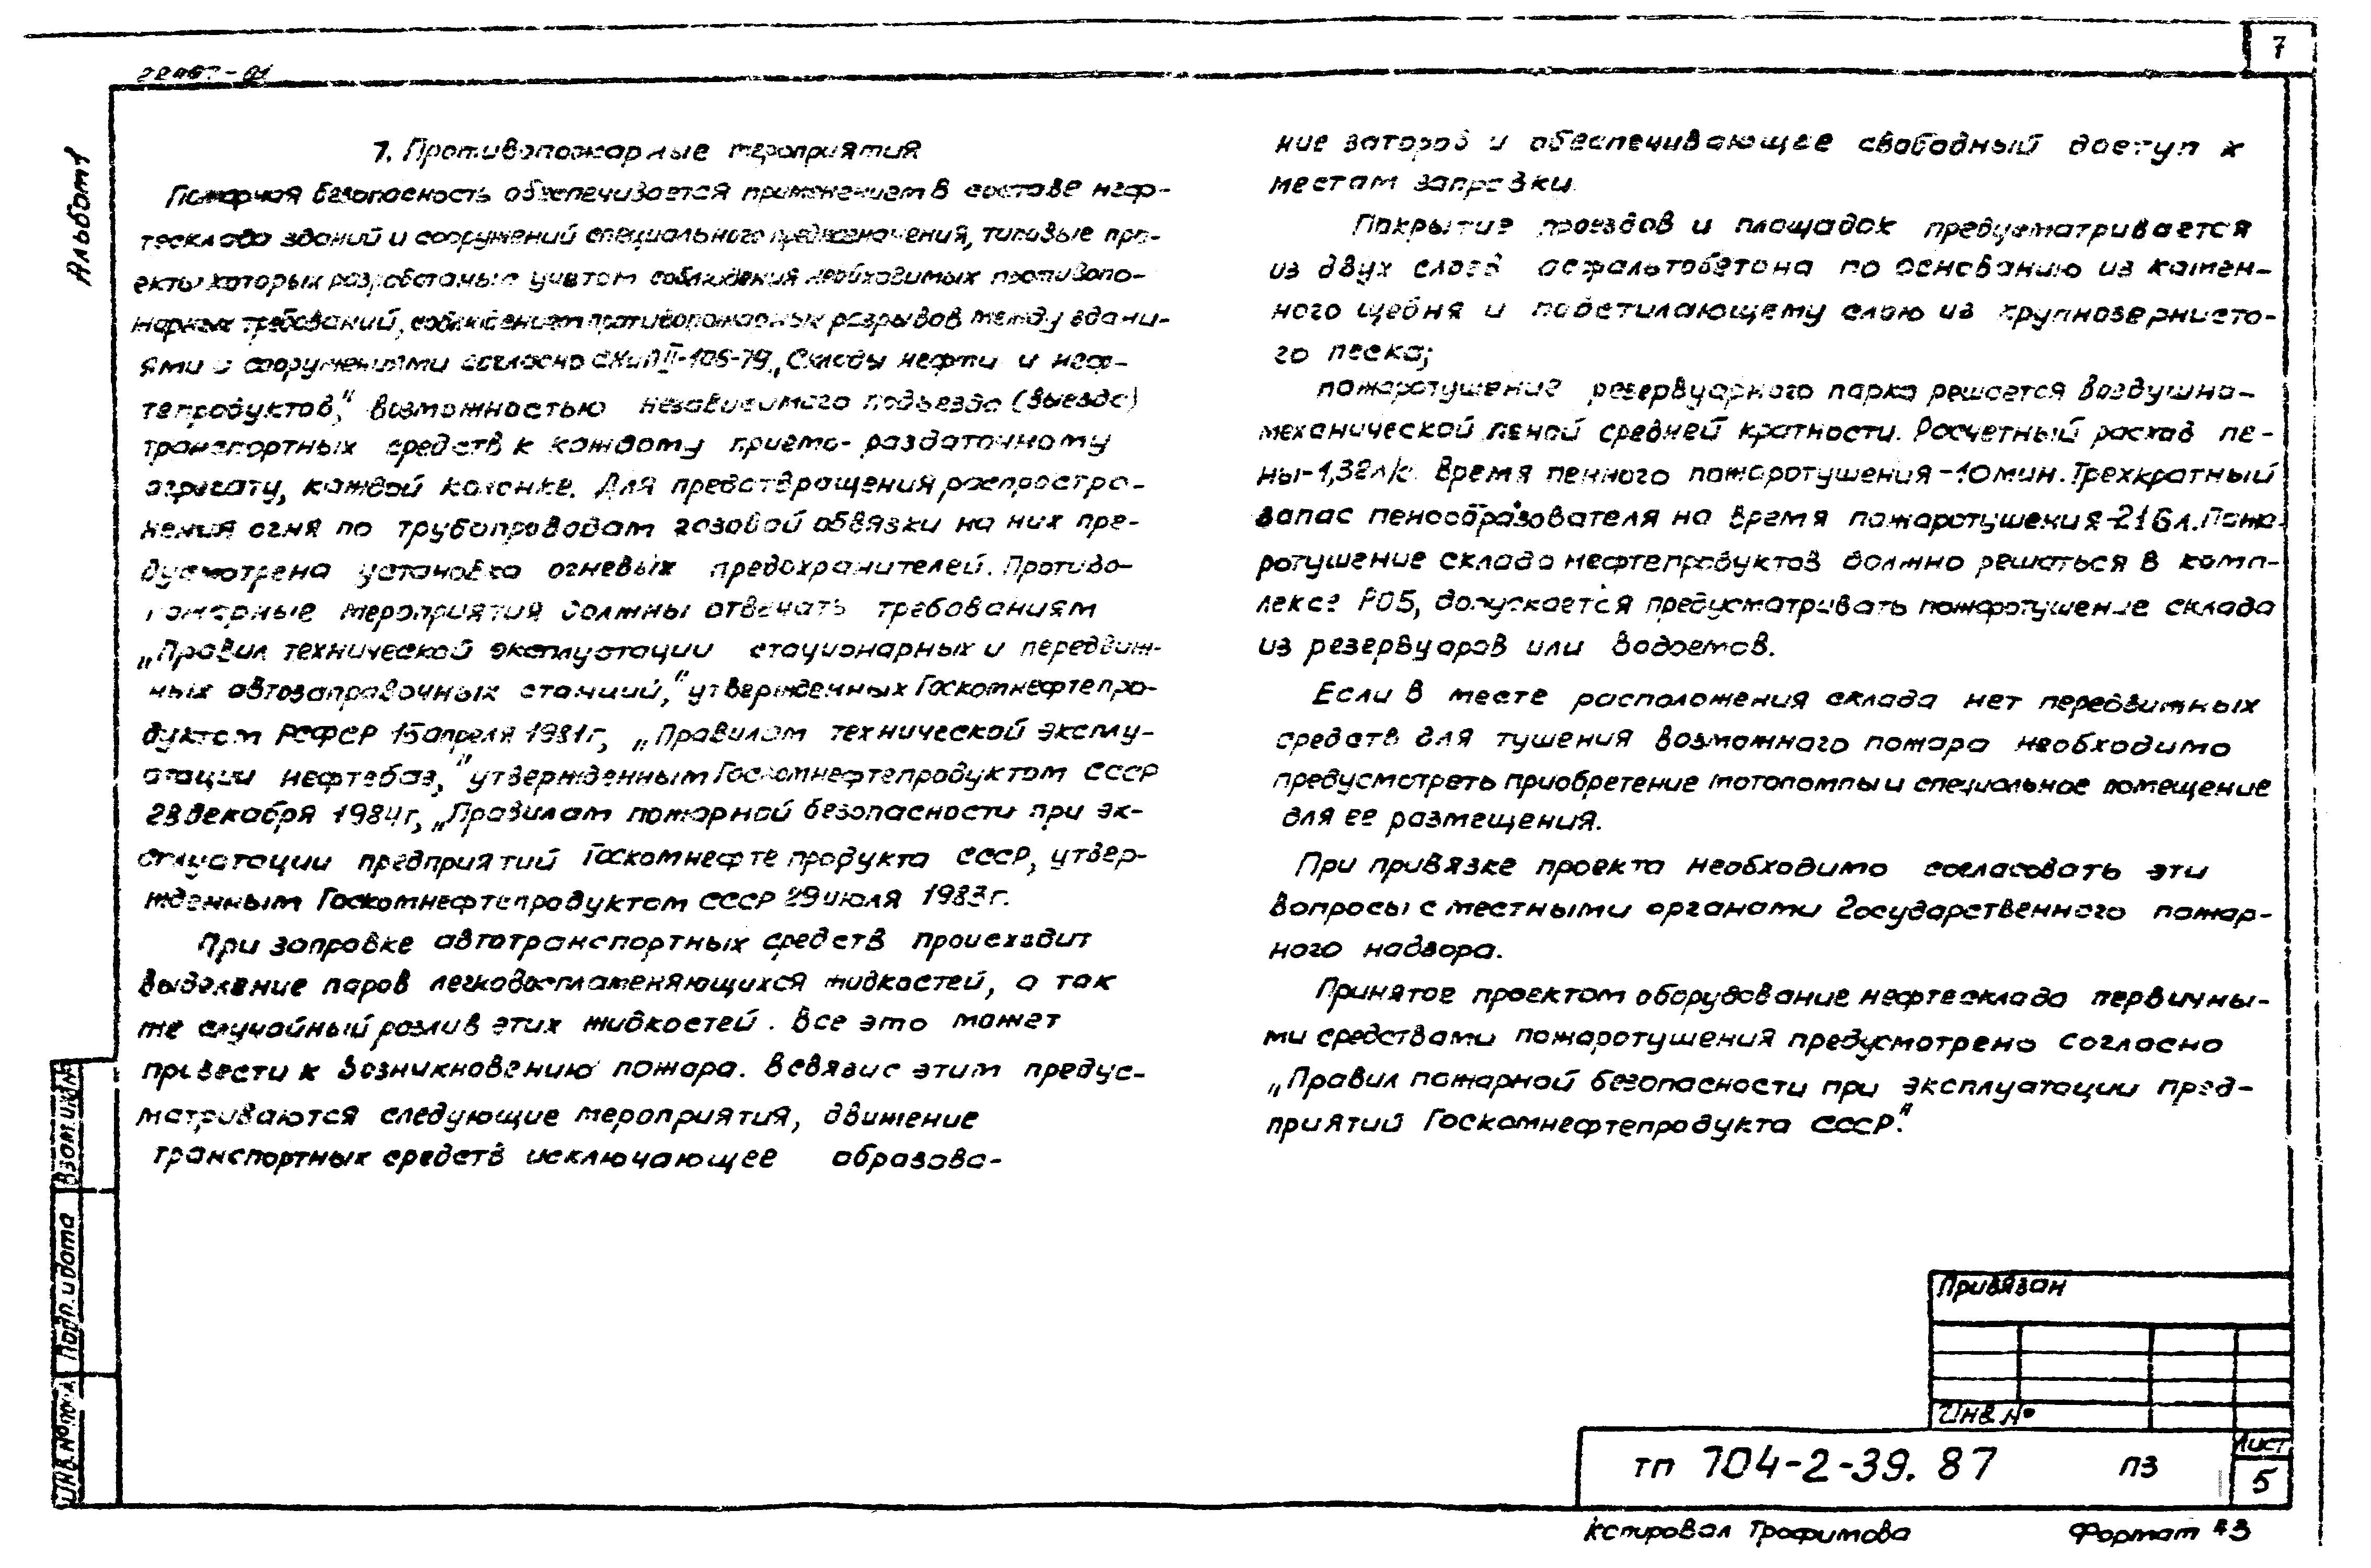 7
Альбом 1
7. Противопожарные мероприятия
Пожарная безопасность обеспечивается применением в составе неф-
тесклада зданий и сооружений специального предназначения, типовые про-
екты которых разработаны с учетом соблюдения необходимых противопо-
жарных требований, соблюдением противопожарных разрывов между здани-
ями и сооружениями согласно СНиП II-106-79 „Склады нефти и неф-
тепродуктов," возможностью независимого подъезда (выезда)
транспортных средств к каждому приемо-раздаточному
агрегату, каждой колонке. Для предотвращения распростра-
нения огня по трубопроводам газовой обвязки на них пре-
дусмотрена установка огневых предохранителей. Противо-
пожарные мероприятия должны отвечать требованиям
„Правил технической эксплуатации стационарных и передвиж-
ных автозаправочных станций," утвержденных Госкомнефтепро-
дуктом РСФСР 15 апреля 1981г, „Правилам технической эксплу-
атации нефтебаз," утвержденным Госкомнефтепродуктом СССР
28 декабря 1984г, „Правилам пожарной безопасности при эк-
сплуатации предприятий Госкомнефтепродукта СССР, утвер-
жденным Госкомнефтепродуктом СССР 29 июля 1983г.
При заправке автотранспортных средств происходит
выделение паров легковоспламеняющихся жидкостей, а так
же случайный розлив этих жидкостей. Все это может
привести к возникновению пожара. В связи с этим предус-
матриваются следующие мероприятия, движение
транспортных средств исключающее образова-
ние заторов и обеспечивающее свободный доступ к
местам заправки.
Покрытие проездов и площадок предусматривается
из двух слоев асфальтобетона по основанию из камен-
ного щебня и подстилающему слою из крупнозернисто-
го песка;
пожаротушение резервуарного парка решается воздушно-
механической пеной средней кратности. Расчетный расход пе-
ны-1,38л/с. Время пенного пожаротушения-10мин. Трехкратный
запас пенообразователя на время пожаротушения-216л. Пожа-
ротушение склада нефтепродуктов должно решаться в комп-
лексе РО5, допускается предусматривать пожаротушение склада
из резервуаров или водоемов.
Если в месте расположения склада нет передвижных
средств для тушения возможного пожара необходимо
предусмотреть приобретение мотопомпы и специальное помещение
для ее размещения.
При привязке проекта необходимо согласовать эти
вопросы с местными органами Государственного пожар-
ного надзора.
Принятое проектом оборудование нефтесклада первичны-
ми средствами пожаротушения предусмотрено согласно
„Правил пожарной безопасности при эксплуатации пред-
приятий Госкомнефтепродукта СССР."
Взам.инв№
Подп. и дата
Инв.№подл
Привязан
Инв.№
ТП 704-2-39.87 ПЗ
Лист
5
Копировал Трофимова Формат А3